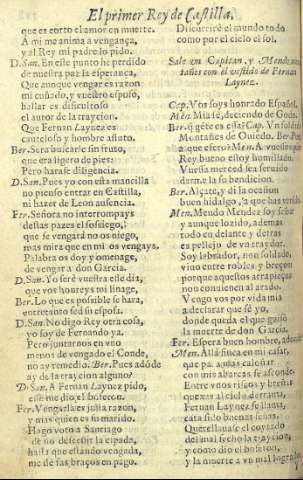 El primer Rey de Castilla.
que es corto el amor en muerte.
A mi me anima a vengança,
y al Rey mi padre lo pido.
D. San. En este punto he perdido
de nuestra paz la esperança,
Que aunque vengar es razon
mi cuñado, y vuestro esposo,
hallar es dificultoso
el autor de la traycion.
Que Fernan Laynez es
cauteloso y hombre astuto.
Ber. Sera buscarle sin fruto,
que era ligero de pies:
Pero harase diligencia.
D. San. Pues yo con esta mancilla
no pienso entrar en Castilla,
ni hazer de Leon ausencia.
Fer. Señora no interrompays
destas pazes el sossiego,
que se vengará no os niego,
mas mira que en mi os vengays.
Palabra os doy y omenage,
de vengar a don Garcia.
D. San. Yo seré vuestra esse dia,
que vos honreys mi linage,
Ber. Lo que es possible se hara,
entretanto sed su esposa.
D. San. No digo Rey otra cosa,
yo soy de Fernando ya.
Pero juntarnos en vno
menos de vengado el Conde,
no ay remedio. Ber. Pues adóde
ay de la traycion alguno?
D. San. A Fernan Laynez pido,
esse me dio el bofeton.
Fer. Vengarla es justa razon,
y mas quien es su marido.
Hago voto a Santiago
de no desceñir la espada,
hasta que estando vengada,
me de sus braços en pago.
Discurriré el mundo todo
como por el cielo el sol.
Sale vn Capitan, y Mendo mon-
tañes con el vestido de Fernan
Laynez.
Cap. Vos soys honrado Español.
Men. Mia fé, deciendo de Godo.
Ber. q gēte es esta? Cap. Vn soldado
Montañes de Ouiedo. Ber. Pues
a que es esto? Men. A vuestros pies
Rey bueno estoy humillado.
Vuestra merced sea seruido
darme la su bendicion.
Ber. Alçate, y di la ocasion
buen hidalgo, a que has venido.
Men. Mendo Mendez soy señor
y aunque loxido, ademas
todo en delante y detras
es pellejo de vn traydor.
Soy labrador, non soldado,
vino entre robles y breços
porque aquestos arrapieços
non conuienen al arado.
Vengo vos por vida mia
a declarar que sé yo,
donde queda el que guisó
la muerte de don Garcia.
Fer. Espera buen hombre,
Men. Allá finca en mi casar,
que pa
con mis abarcas se asconde
Entre vnos riscos y breñas
que
Fernan Laynez se llama,
cata sido buenas señas.
Querellanase el coytado
del mal fecho la traycion,
y como dio el bofeton,
y la muerte a vn mal logrado